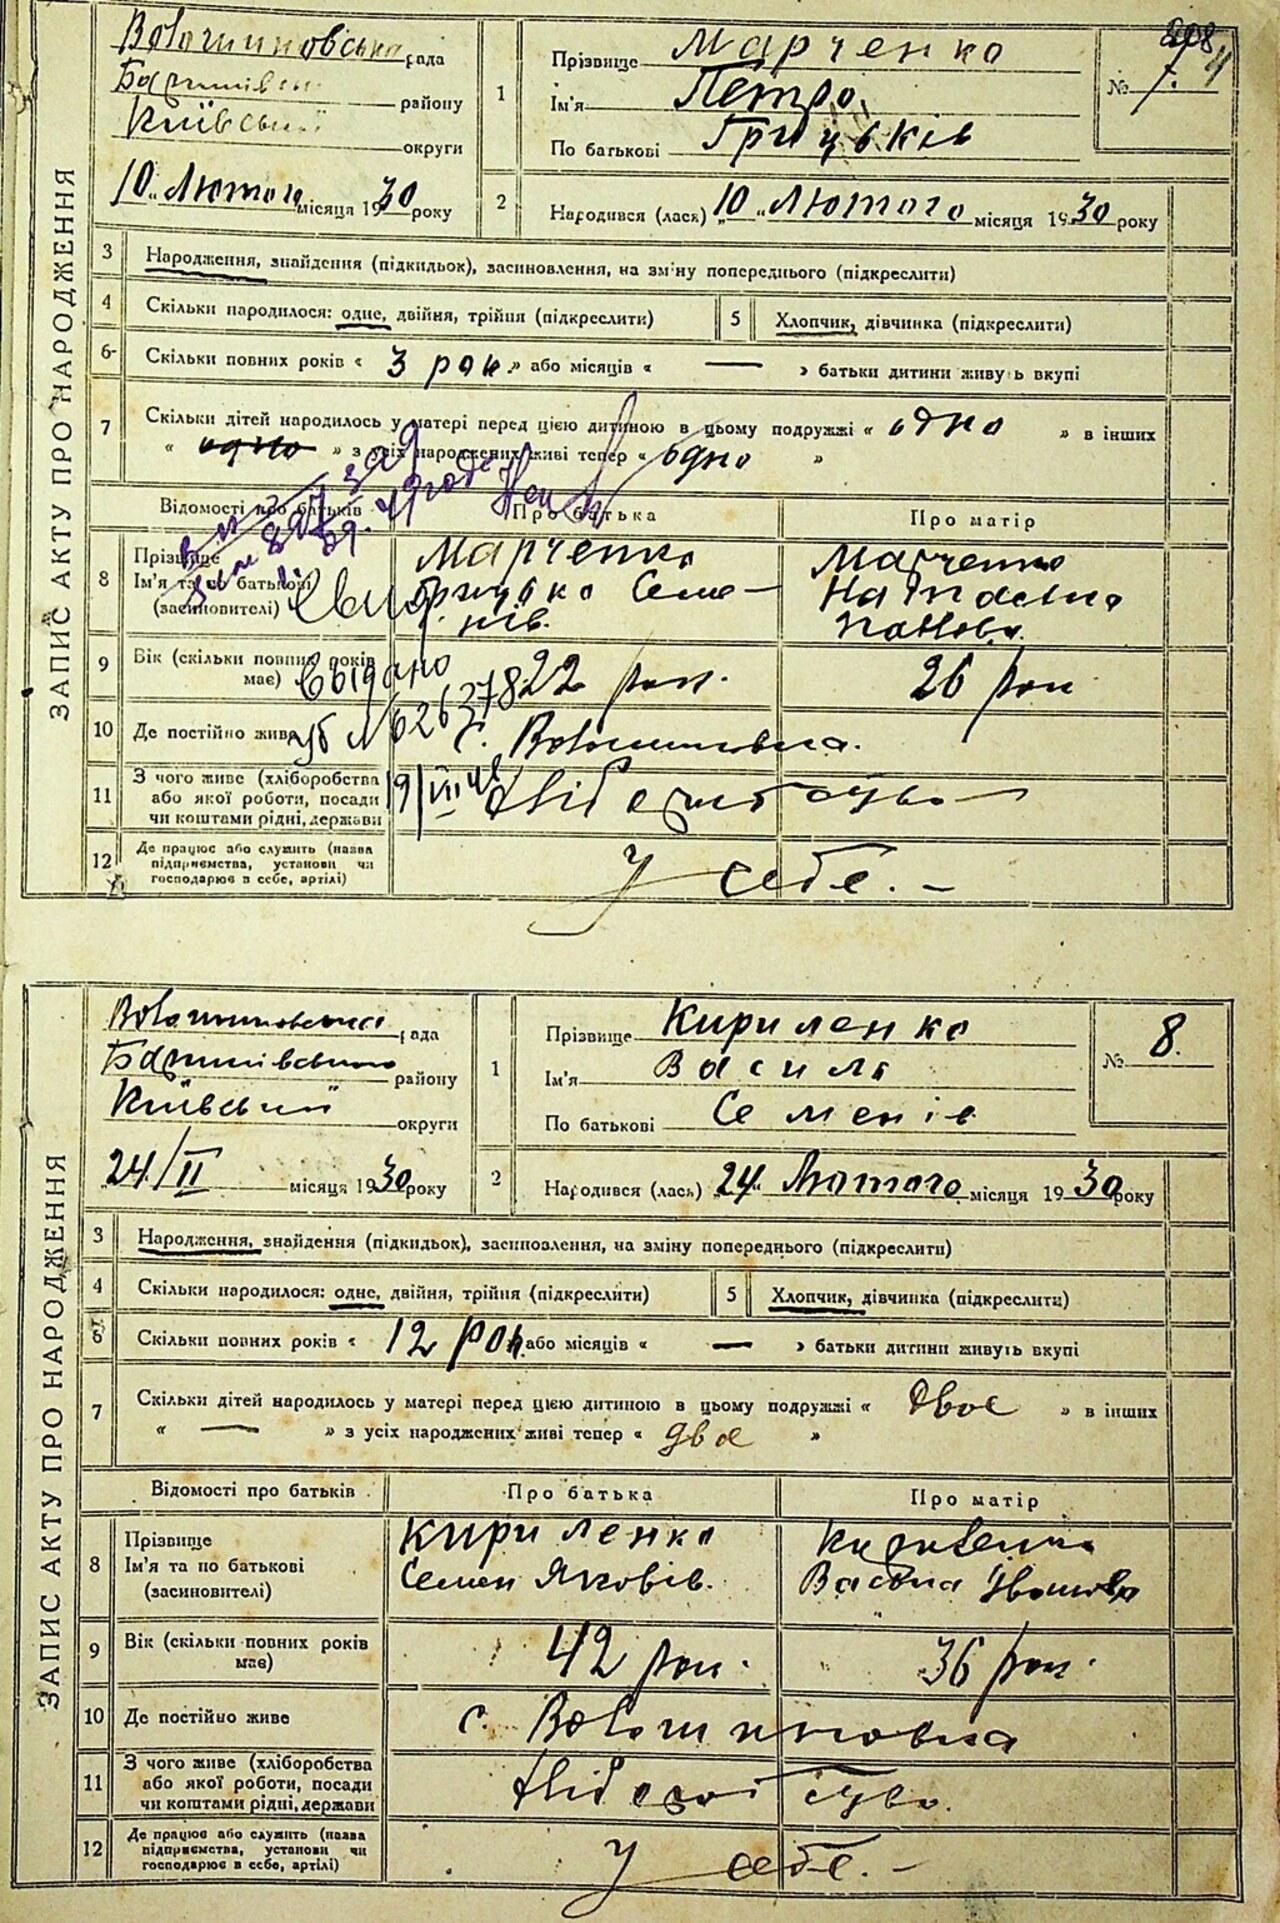 ЗАПИС АКТУ ПРО НАРОДЖЕННЯ
Волошиновська рада
Баришівськ району
Київський округи
10 Лютого місяця 1930 року
1
Прізвище Марченко
Ім'я Петро
По батькові Грицьків
№ 7.
2
Народився (лася) „10“ Лютого місяця 1930 року
3 Народження, знайдення (підкидьок), засиновлення, на зміну попереднього (підкреслити)
4 Скільки народилося: одне, двійня, трійня (підкреслити)
5 Хлопчик, дівчинка (підкреслити)
6 Скільки повних років « 3 рок. » або місяців « — » батьки дитини живуть вкупі
7 Скільки дітей народилось у матері перед цією дитиною в цьому подружжі « одно » в інших
« одно » з усіх народжених живі тепер « одно »
Відомості про батьків Про батька Про матір
8 Прізвище
Ім'я та по батькові
(засиновителі)
Марченко
Грицько Семе-
нів.
Марченко
Настасия
Панова.
9 Вік (скільки повних років має) 22 рок. 26 рок
Выдано
10 Де постійно живе с. Волошиновка.
11 З чого живе (хліборобства
або якої роботи, посади
чи коштами рідні, держави
Хліборобство
12 Де працює або служить (назва
підприємства, установи чи
господарює в себе, артілі)
У себе. –
ЗАПИС АКТУ ПРО НАРОДЖЕННЯ
Волошиновська рада
Баришівського району
Київський округи
24/II місяця 1930 року
1
Прізвище Кириленко
Ім'я Василь
По батькові Семенів
№ 8.
2
Народився (лася) „24“ Лютого місяця 1930 року
3 Народження, знайдення (підкидьок), засиновлення, на зміну попереднього (підкреслити)
4 Скільки народилось: одне, двійня, трійня (підкреслити)
5 Хлопчик, дівчинка (підкреслити)
6 Скільки повних років « 12 рок. або місяців « — » батьки дитини живуть вкупі
7 Скільки дітей народилось у матері перед цією дитиною в цьому подружжі « двоє » в інших
« — » з усіх народжених живі тепер « двоє »
Відомості про батьків Про батька Про матір
8 Прізвище
Ім'я та по батькові
(засиновителі)
Кириленко
Семен Яковів.
Кириленко
Іванова
9 Вік (скільки повних років має) 42 рок. 36 рок.
10 Де постійно живе с. Волошиновка
11 З чого живе (хліборобства
або якої роботи, посади
чи коштами рідні, держави
Хліборобство.
12 Де працює або служить (назва
підприємства, установи чи
господарює в себе, артілі)
У себе. –